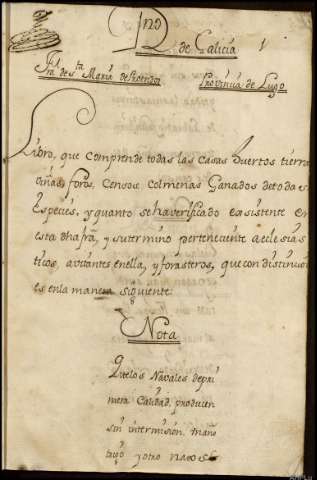 Rno
de Galicia 1
Fra. de Sta. Maria de
Provincia de Lugo
Libro, que comprende todas las casas Huertos tierra
viñas, foros, Censos, colmenas Ganados de todas
Especies, y quanto se ha verificado existente en
esta dha frã, y su termino perteneciente a eclesias
ticos, avitantes en ella, y forasteros, que con distincion
es en la manera siguiente
Nota
Que los Navales de pri
mera Calidad, producen
sin intermision,
y otro